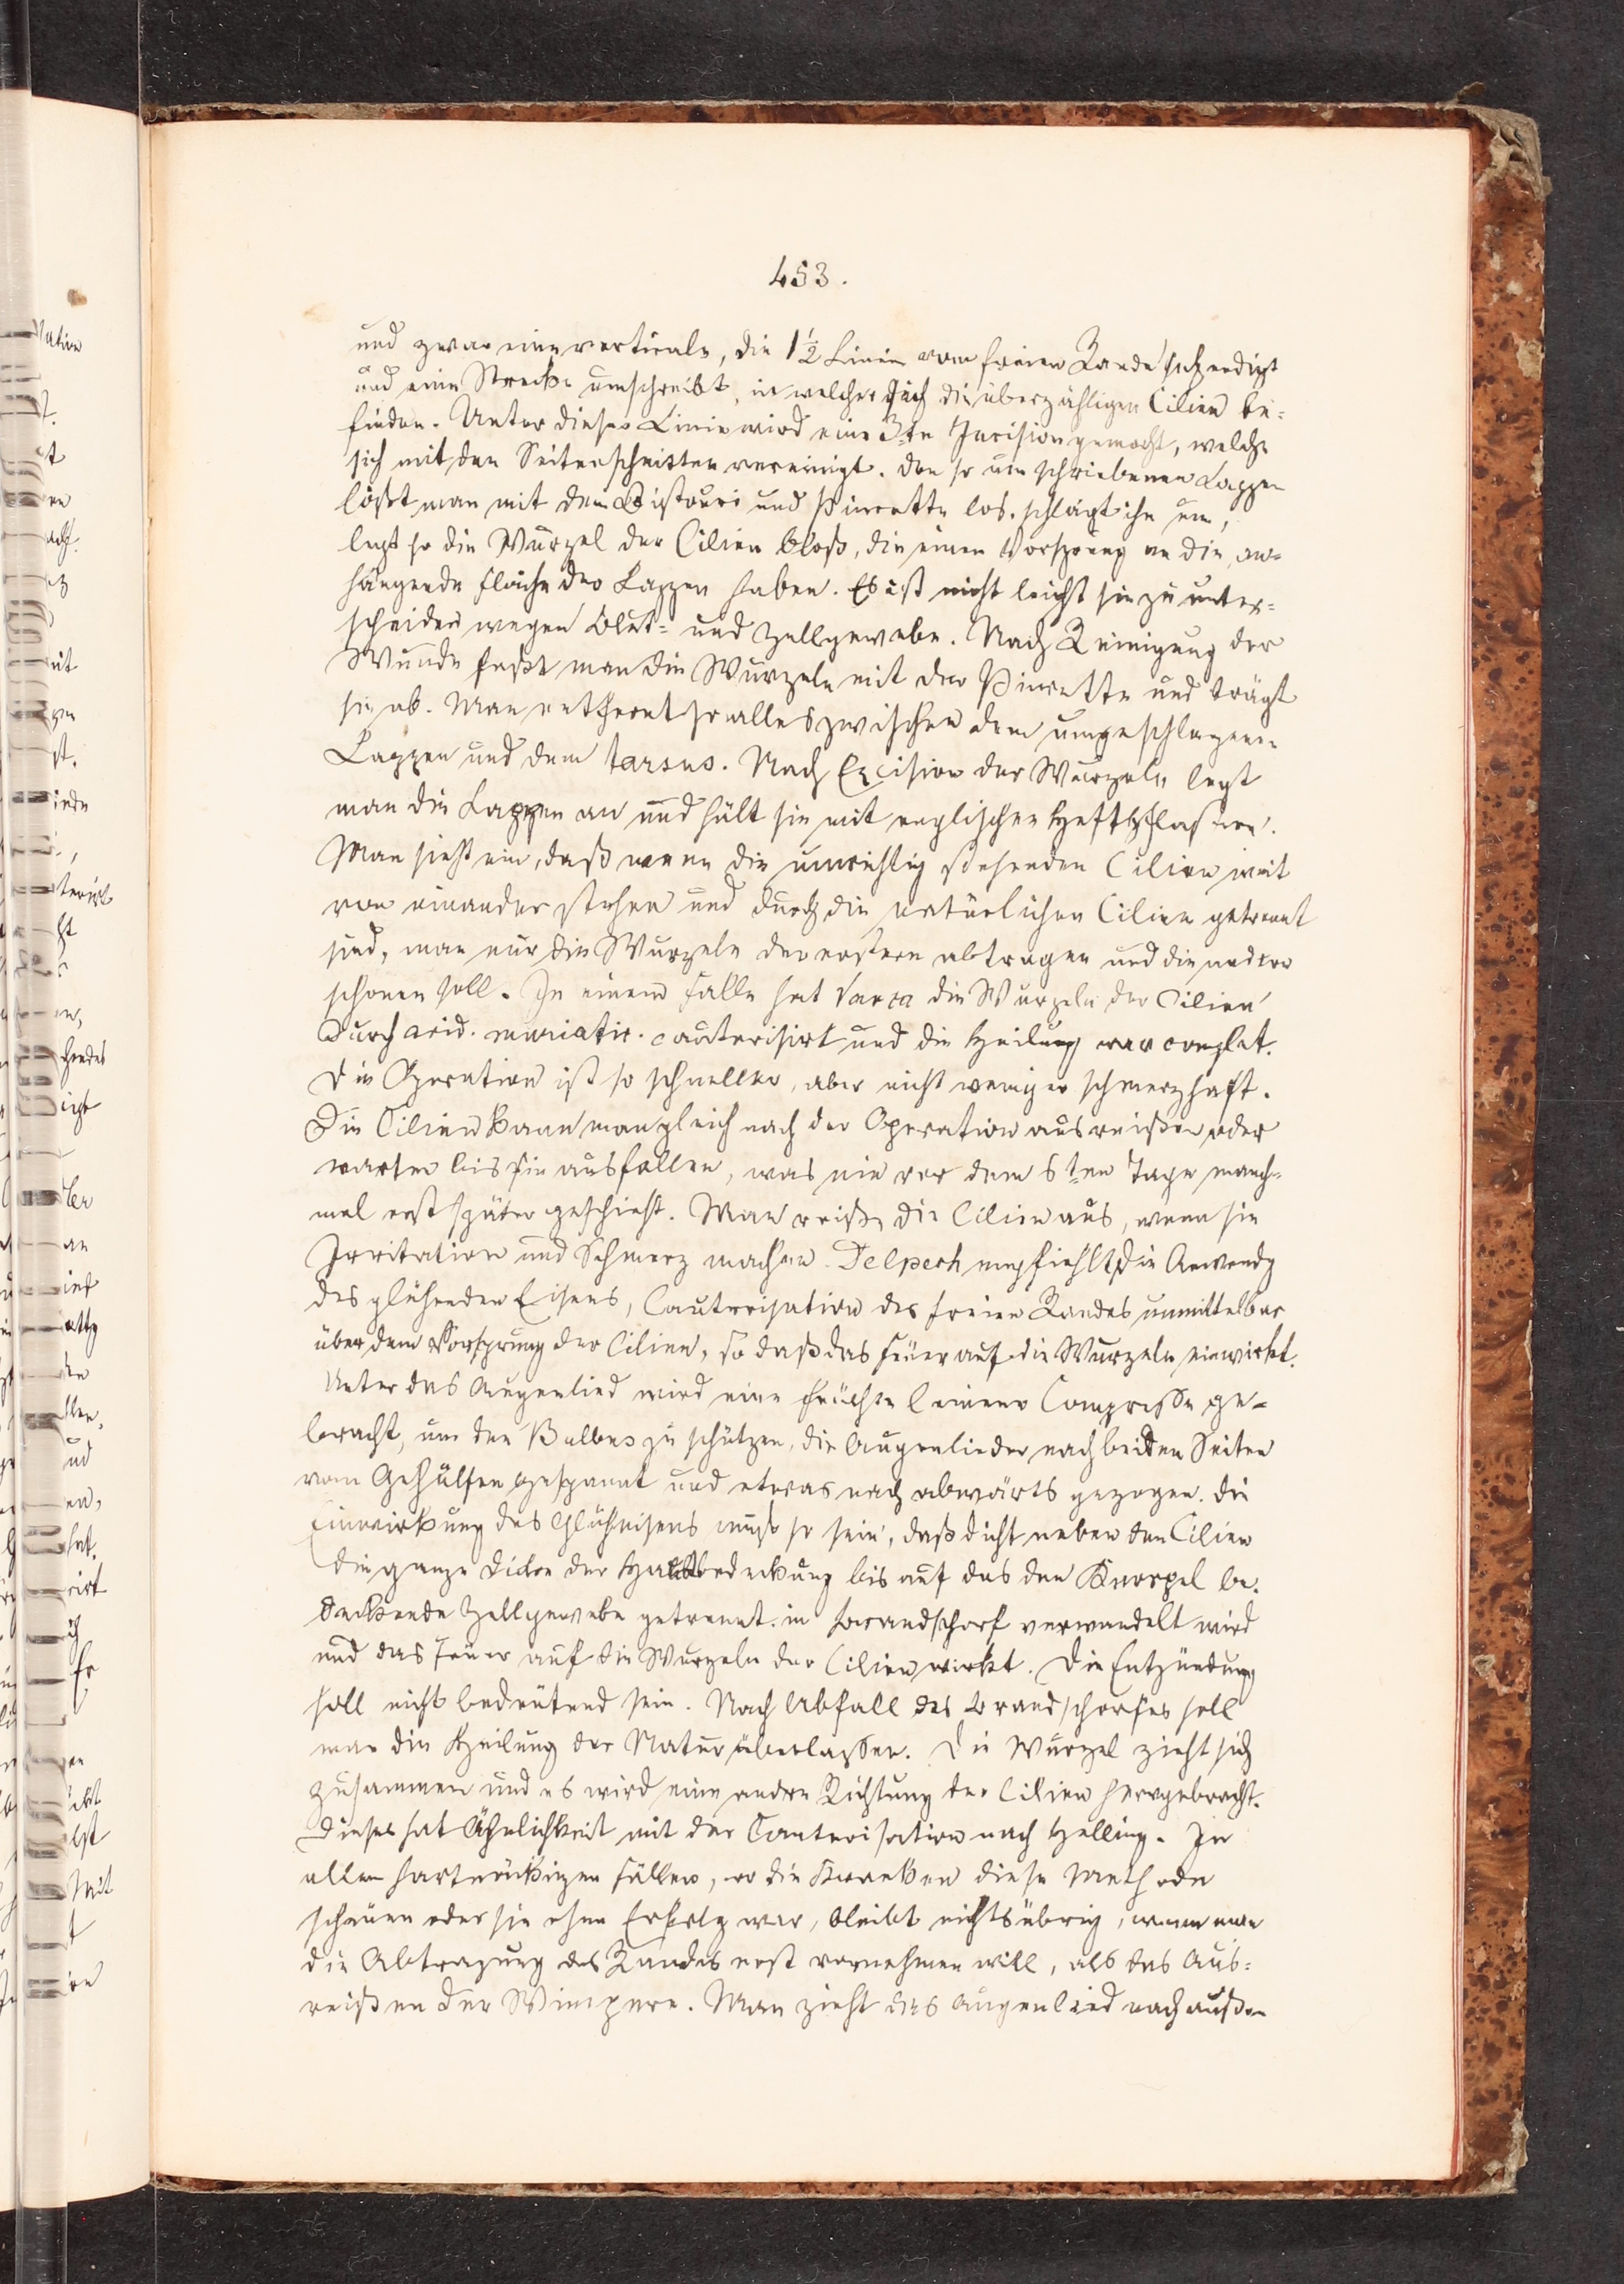 453.
und zwar eine verticale, die 1½ Linie vom freien Rande sich endigt
und eine Strecke umschreibt, in welcher sich die überzähligen Cilien be-
finden. Unter dieser Linie wird eine 3te Incision gemacht, welche
sich mit den Seitenschnitten vereinigt. Den so umschriebenen Lappen
löst man mit dem Bistouri und Pincette los, schlägt ihn um,
legt so die Wurzel der Cilien bloß, die einen Vorsprung an die an-
hängende Fläche des Lappen haben. Es ist nicht leicht sie zu unter-
scheiden wegen Blut- und Zellgewebe. Nach Reinigung der
Wunde faßt man die Wurzeln mit der Pincette und trägt
sie ab. Man entfernt so alles zwischen dem umgeschlagenen
Lappen und dem tarsus. Nach Excision der Wurzeln legt
man die Lappen an und hält sie mit englischen Heftpflastern.
Man sieht ein, daß wenn die unrichtig stehenden Cilien weit
von einander stehen und durch die natürlichen Cilien getrennt
sind, man nur die Wurzeln der erstern abtragen und die andern
schonen soll. In einem Falle hat Vacca die Wurzeln der Cilien
durch acid. muriatic. cauterisirt und die Heilung war complet.
Die Operation ist so schneller, aber nicht weniger schmerzhaft.
Die Cilien kann man gleich nach der Operation ausreißen oder
warten bis sie ausfallen, was nie vor dem 6ten Tage manch-
mal erst später geschieht. Man reiße die Cilien aus, wenn sie
Irritation und Schmerz machen. Delpech empfiehlt die Anwendg
des glühenden Eisens, Cauterisation des freien Randes unmittelbar
über dem Vorsprung der Cilien, so daß das Feuer auf die Wurzeln einwirkt.
Unter das Augenlied wird eine feuchte leinene Compresse ge-
bracht, um den Bulbus zu schützen, die Augenlieder nach beiden Seiten
vom Gehülfen gespannt und etwas nach abwärts gezogen. Die
Einwirkung des Glüheisens muß so sein, daß dicht neben den Cilien
die ganze Dicke der Hautbedeckung bis auf das den Knorpel be-
deckende Zellgewebe getrennt in Brandschorf verwandelt wird
und das Feuer auf die Wurzeln der Cilien wirkt. Die Entzündung
soll nicht bedeutend sein. Nach Abfall des Brandschorfes soll
man die Heilung der Natur überlassen. Die Wurzel zieht sich
zusammen und es wird eine andre Richtung der Cilien hervgebracht.
Dieses hat Ähnlichkeit mit der Cauterisation nach Helling. In
allen hartnäckigen Fällen, wo die Kranken diese Methode
scheuen oder sie ohne Erfolg war, bleibt nichts übrig, wenn man
die Abtragung des Randes erst vornehmen will, als das Aus-
reißen der Wimpern. Man zieht das Augenlied nach außen